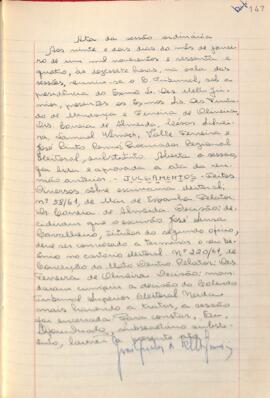 147
Ata da sessão ordinária
Aos vinte e dois dias do mês de janei-
ro de um mil novecentos e sessenta e
quatro, às dezessete horas, na sala das
sessões, reuniu-se o E. Tribunal, sob a
presidência do Exmo Sr. Des. Mello Ju-
nior, presentes os Exmos Srs. Des.
de Mendonça e Ferreira de Oliveira,
Drs. Correia de Almeida,
Samuel Werneck, Valle Ferreira e
José Pinto Procurador Regional
Eleitoral, substituto. Aberta a sessão,
foi lida e aprovada a ata da reu-
nião anterior. - JULGAMENTOS - Feitos
diversos sobre escrivania eleitoral,
nº 28/61, de Mar de Espanha. Relator:
Dr. Correia de Almeida. Decisão: de-
cidiram que o escrivão José
titular do segundo ofício,
deve ser convocado a terminar o seu bi-
ênio no cartório eleitoral. Nº 220/61, de
Conceição do Mato Dentro. Relator: Des.
Ferreira de Oliveira. Decisão: man-
daram cumprir a decisão do Colendo
Tribunal Superior Eleitoral. Nada
mais havendo a tratar, a sessão
foi encerrada. Para constar, Eu,
subsecretário substi-
tuto, lavrei a presente ata.